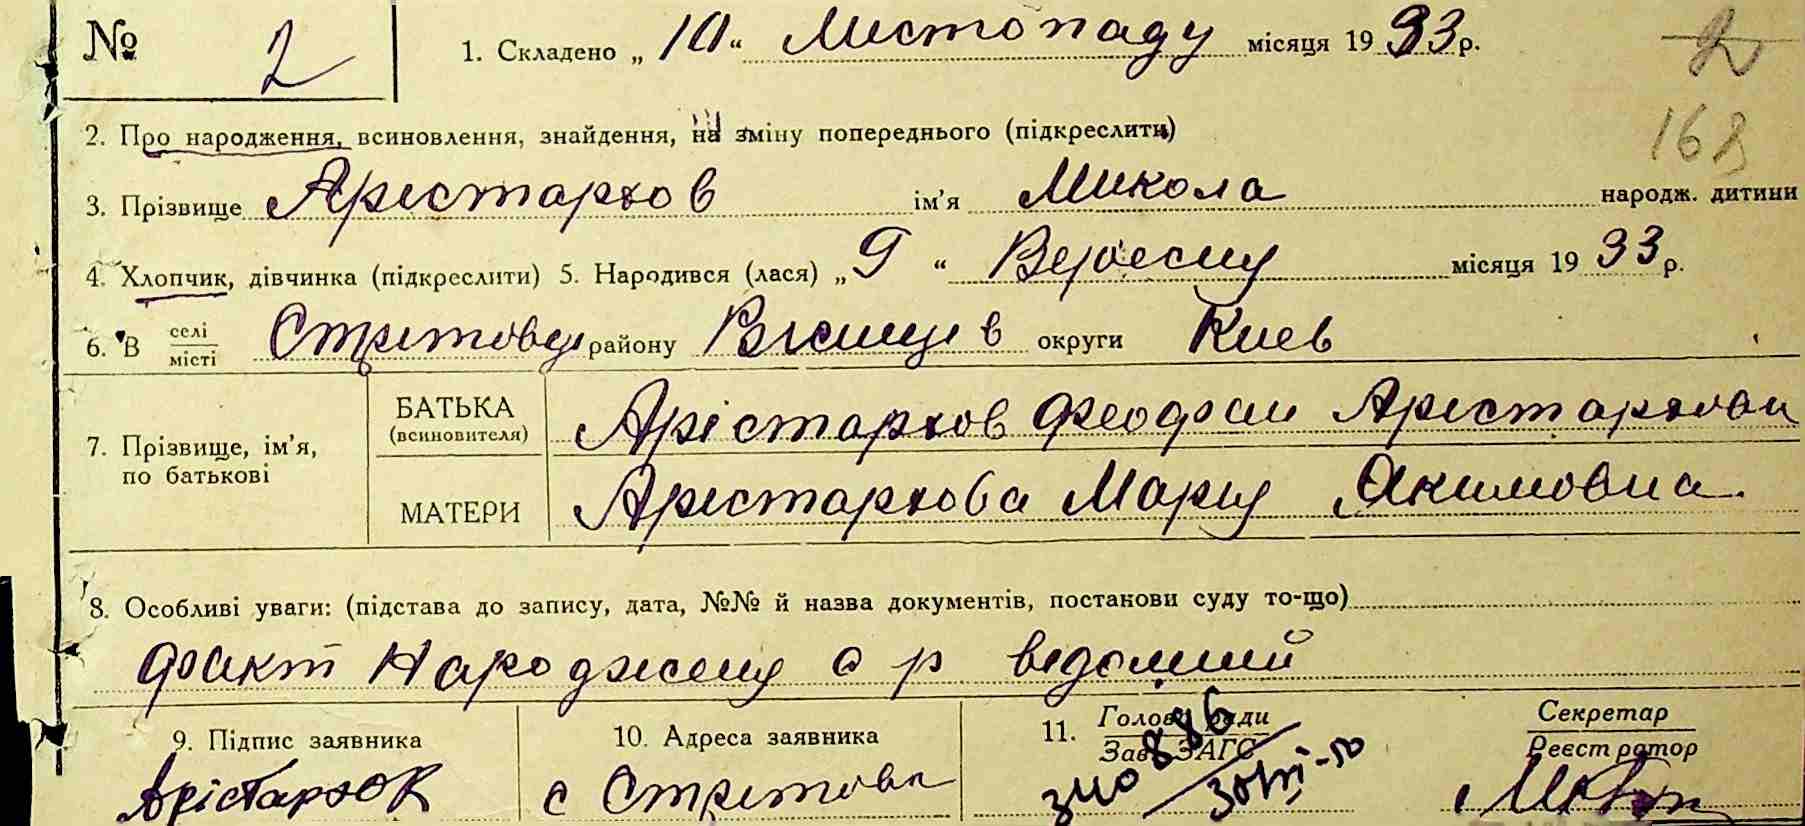 № 2 1. Складено „10“ Листопаду місяця 1933 р. 2
168
2. Про народження, всиновлення, знайдення, на зміну попереднього (підкреслити)
3. Прізвище Арістархов ім'я Микола народж. дитини
4. Хлопчик, дівчинка (підкреслити) 5. Народився (лася) „9“ Вересня місяця 1933 р.
6. В селі/місті Стрітовці району Ржищів округи Киев
7. Прізвище, ім'я, по батькові
БАТЬКА (всиновителя) Арістархов Феофан Арістархович
МАТЕРИ Арістархова Марія Якимовна
8. Особливі уваги: (підстава до запису, дата, №№ й назва документів, постанови суду то-що)
факт Народженя с р відомий
9. Підпис заявника 10. Адреса заявника 11. Голова ради/Зав. ЗАГС Секретар/Реєстратор
Арістархов с Стрітовка